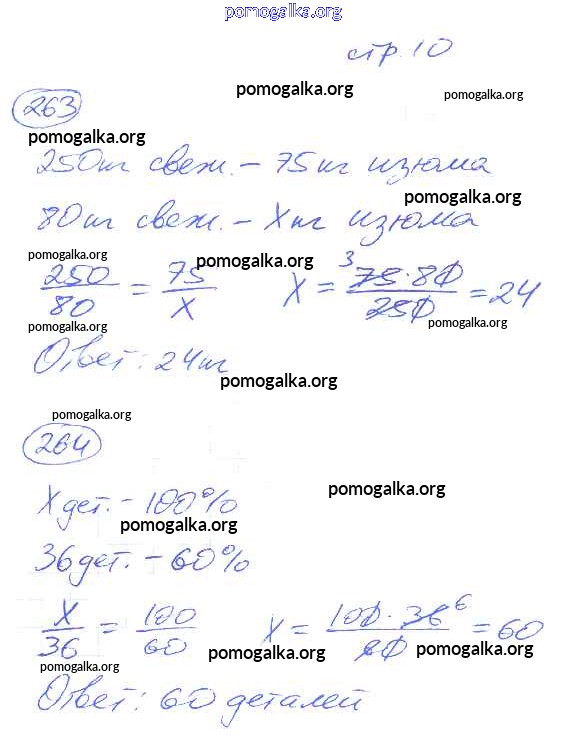 pomogalka.org
стр. 10
pomogalka.org pomogalka.org
263
pomogalka.org
250 кг свеж. – 75 кг изюма
pomogalka.org
80 кг свеж. – X кг изюма
pomogalka.org pomogalka.org
250/80 = 75/X X = 3 75·80/250 = 24
pomogalka.org pomogalka.org
Ответ: 24 кг
pomogalka.org
pomogalka.org
264
pomogalka.org
X дет. – 100%
pomogalka.org
36 дет. – 60%
X/36 = 100/60 X = 100·36 6/60 = 60
pomogalka.org pomogalka.org pomogalka.org
Ответ: 60 деталей